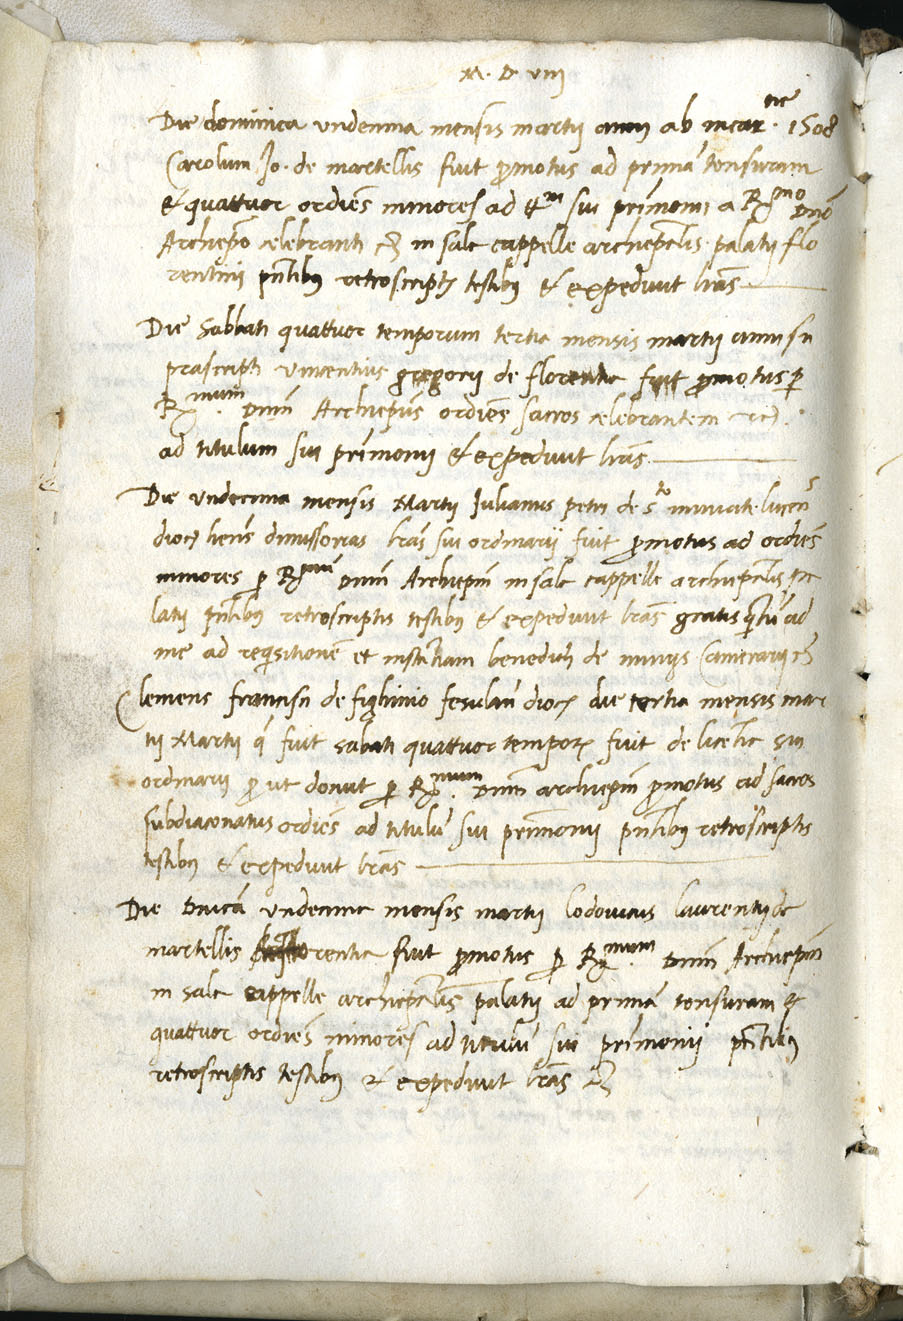 M. D. VIII
Die dominica undecima mensis martii anni ab incar.ne 1508
Carolum Jo. de martellis fuit promotus ad primā tonsuram
& quattuor ordiēs minores ad tt.m sui prīmonii a R.mo Dnō
Archiepō celebranti &c in sale cappelle archieplis palatii flo
rentini pntibus retroscriptis testibus & expediuit lras
Die Sabbati quattuor temporum tertia mensis martii anni su
prascripti vincentius gregorii de florentia fuit promotus p
R.mum Dnm Archiepūs ordiēs sacros celebrantem
ad titulum sui prīmonii & expediuit lras.
Die undecima mensis Martii Julianus petri de s.to miniate lucen̄
dioc. hens dimissorias lras sui ordinarii fuit promotus ad ordiēs
minores p R.mum Dnm Archiepm in sale cappelle archieplis pa
latii pntibus retroscriptis testibus & expediuit lras gratis qtū ad
me ad reqsitionē et instantiam benedicti de Camerarii &c
Clemens francisci de fighinio fesulan̄ dioc. die tertia mensis mar
tii Martii q fuit sabati quattuor tempor. fuit de licentie sui
ordinarii pro ut donut p R.mum Dnm archiepm promotus ad sacros
subdiaconatus ordiēs ad titulū sui prīmonii pntibus retroscriptis
testibus & expediuit lras
Die Dnicā undecima mensis martii lodovicus laurentii de
martellis florentie fuit promotus p R.mum Dnm Archiepm
in sale cappelle archieplis palatii ad primā tonsuram &
quattuor ordiēs minores ad titulū sui prīmonii pntibus
retroscriptis testibus & expediuit lras &c